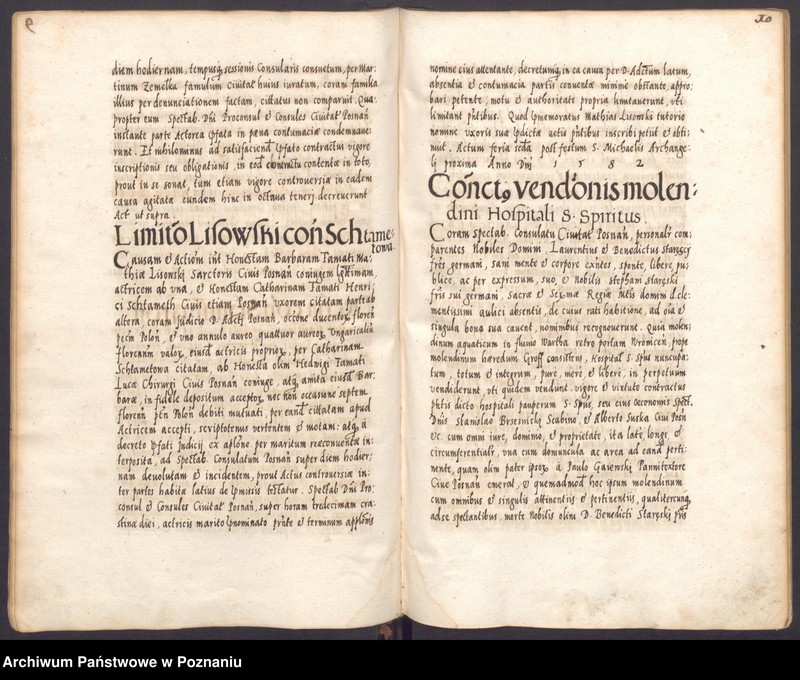 9
diem hodiernam, tempusq; sessionis Consularis consuetum, per Mar:
tinum Zemelku famulum Civitat huius iuratum, coram familia
illius per denunciationem factam, citatus non comparuit. Qua
propter eum Spectab. Dni Proconsul et Consules Civitat Posnan
instante parte Actorea Ipsata in pœna contumaciæ condemnaue:
runt. Et nihilominus ad satisfaciend Ipsato contractui vigore
inscriptionis seu obligationis, in eod contractu contentæ in toto,
prout in se sonat, tum etiam vigore controversiæ in eadem
causa agitatæ eundem hinc in octaua teneri decreuerunt
Act ut supra.
Limitō Lisowski con Schtame:
towa.
Causam et Action int Honestam Barbaram Famati Ma:
thiæ Lisonski Sarctoris Civis Posnan coniugem lgttimam,
actricem ab vna, et Honestam Catharinam Famati Henri:
ci Schtameth Civis etiam Posnan vxorem citatam parte ab
altera, coram Judicio D. Adctj Posnan, occōne ducentor floren
pecn Polon, et vno annulo aureo quattuor aureor Vngaricaliū
florenum valor, eiusd actricis proprior, per Catharinam
Schtametowa citatam, ab Honesta olim Hedvigi Famati
Lucæ Chirurgi Civis Posnan coniuge, atq; amita eiusd Bar:
baræ, in fidele depositum acceptor, nec non occasione septem
florenn pcn Polon debiti mutuati, per eand citatam apud
Actricem accepti, scriptotenus vertentem et motam: atq; à
decreto Ipsati Judicij ex aplone per maritum reconuentæ in:
terposita, ad Spectab. Consulatum Posnan super diem hodier:
nam devolutam et incidentem, prout Actus controversiæ in:
ter partes habitæ latius de Ipmissis testatur. Spectab Dni Pro:
consul et Consules Civitat Posnan, super horam tredecimam cra:
stinæ diei, actricis marito Ipnominato pnte et terminum applonis
10
nomine eius attentante, decretumq; in ea causa per D. Adctum latum,
absentia et contumacia partis conventæ minime obstante, appro:
bari petente, motu et authoritate propria limitauerunt, vti
limitant pntibus. Quod Ipmemoratus Mathias Lisonski tutorio
nomine vxoris suæ Ipdictæ actis pntibus inscribi petijt et obti:
nuit. Actum feria scda post festum S. Michaelis Archange:
li proxima Anno Dni 1 5 8 2
Conct9 vendonis molen:
dini Hospitali S. Spiritus.
Coram Spectab. Consulatu Civitat Posnan, personalr com:
parentes Nobiles Domini, Laurentius et Benedictus Staręscy
frēs germani, sani mente et corpore exntes, sponte, libere, pu:
blice, ac per expressum, suo, et nobilis Stephani Staręski
fris sui germani, Sacræ et Sermæ Regiæ Mtis domini d. cle:
mentissimi aulici absentis, de cuius rati habitione, ad oīa et
singula bona sua cauent, nominibus recognouerunt. Quia molen:
dinum aquaticum in fluvio Wartha retro portam Wronicen, prope
molendinum hæredum Groff consistens, Hospitali S. Spus nuncupa:
tum, totum et integrum, pure, mere et libere, in perpetuum
vendiderunt, vti quidem vendunt vigore et virtute contractus
pntis dicto hospitali pauperum S. Spus, seu eius œconomis Spect.
Dnis Stanislao Brzesnicky Scabino, et Alberto Suska Civi Posn
etc. cum omni iure, dominio, et proprietate, ita late, longe, et
circumferentialr, vna cum domuncula ac area ad eand perti:
nente, quam olim pater ipsor à Paulo Gaienski Pannitextore
Cive Posnan emerat, et quemadmod hoc ipsum molendinum
cum omnibus et singulis attinentiis et pertinentiis, qualitercunq;
ad se spectantibus, morte Nobilis olim D. Benedicti Staręski pris
Archiwum Państwowe w Poznaniu